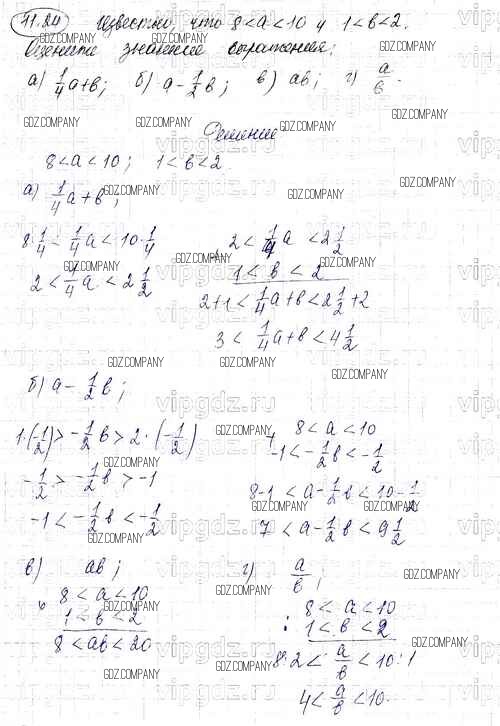 11.20 Известно, что 8<a<10 и 1<b<2.
Оцените значение выражения:
а) 1/4a+b; б) a-1/2b; в) ab; г) a/b.
Решение
8<a<10; 1<b<2
а) 1/4a+b;
8·1/4<1/4a<10·1/4
2<1/4a<2 1/2
2<1/4a<2 1/2
1<b<2
2+1<1/4a+b<2 1/2+2
3<1/4a+b<4 1/2
б) a-1/2b;
1·(-1/2)>-1/2b>2·(-1/2)
-1/2>-1/2b>-1
-1<-1/2b<-1/2
8<a<10
-1<-1/2b<-1/2
8-1<a-1/2b<10-1/2
7<a-1/2b<9 1/2
в) ab;
8<a<10
1<b<2
8<ab<20
г) a/b;
8<a<10
: 1<b<2
8:2<a/b<10:1
4<a/b<10.
GDZ.COMPANY
vipgdz.ru